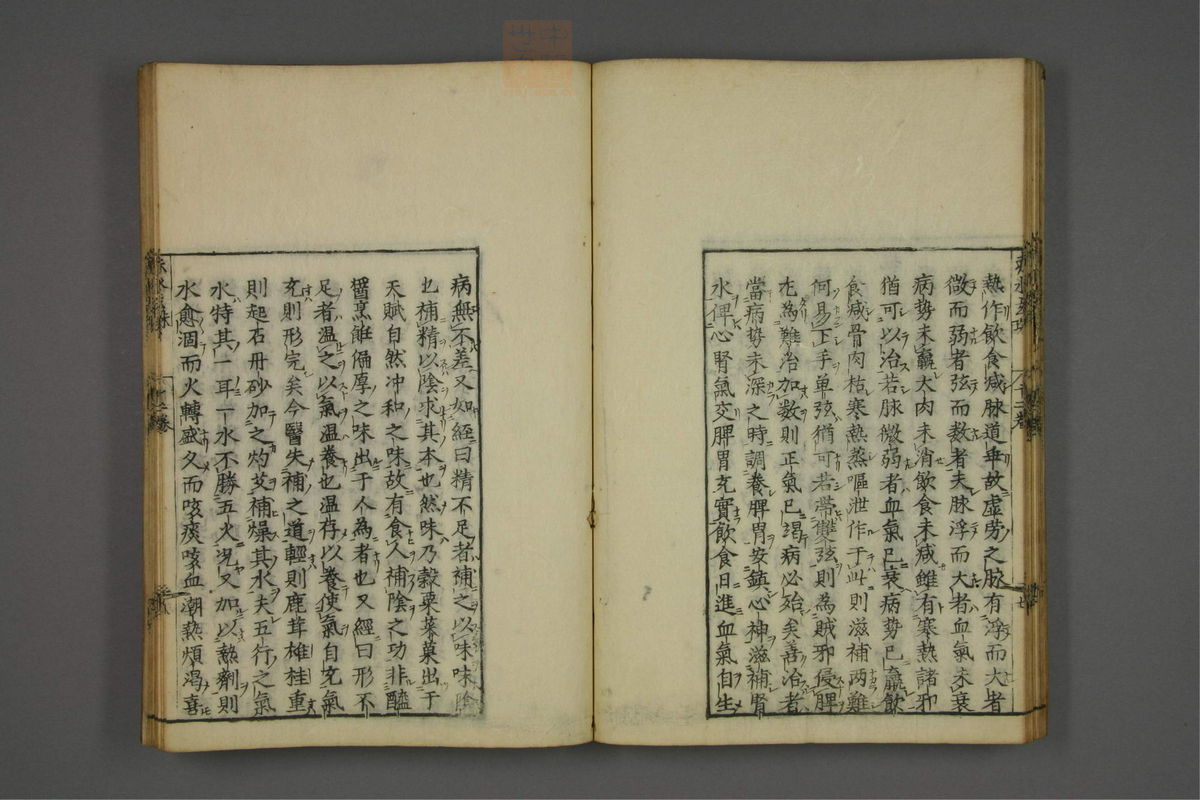 熱作飲食減脉道乖故虛労之脉有浮而大者
微而弱者弦而数者夫脉浮而大者血氣未衰
病勢未羸大肉未消飲食未减雖有寒熱諸邪
猶可以治若脉微弱者血氣已衰病勢已羸飲
食减骨肉枯寒熱蒸嘔泄作于此則滋補两難
何易下手单弦猶可若帯雙弦則為賊邪侵脾
尢為難治加数則正氣已竭病必殆矣善治者
當病勢未深之時調養脾胃安鎮心神滋補腎
水俾心腎氣交脾胃充實飲食日進血氣自生
病無不差又如經曰精不足者補之以味味陰
也補精以陰求其本也然味乃穀粟菜菓出于
天賦自然冲和之味故有食人補陰之功非醯
醬烹飪偏厚之味出于人為者也又經曰形不
足者温之以氣温養也温存以養使氣自充氣
充則形完矣今醫失補之道輕則鹿茸桂重
則起石丹砂加之灼艾補燥其水夫五行之氣
水特其一耳一水不勝五火况又加以熱劑則
水愈涸而火轉盛久而咳痰咳血潮熱煩渇喜
二卷